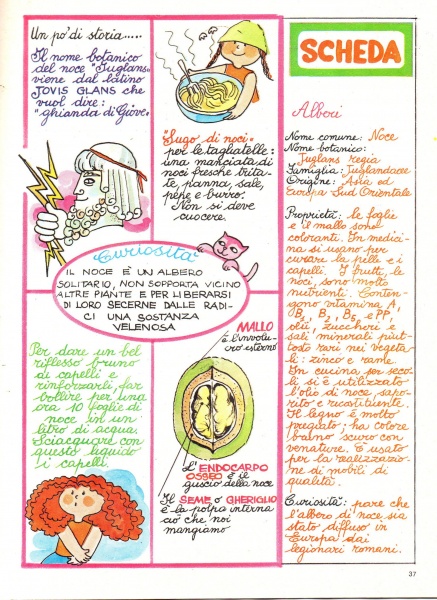 Un po' di storia.....
Il nome botanico
del noce "Juglans"
viene dal latino
JOVIS GLANS che
vuol dire:
"ghianda di Giove"
"Sugo di noci"
per le tagliatelle:
una manciata di
noci fresche trita-
te, panna, sale,
pepe e burro.
Non si deve
cuocere.
"Curiosità"
IL NOCE È UN ALBERO
SOLITARIO, NON SOPPORTA VICINO
ALTRE PIANTE E PER LIBERARSI
DI LORO SECERNE DALLE RADI-
CI UNA SOSTANZA
VELENOSA
Per dare un bel
riflesso bruno
ai capelli e
rinforzarli, far
bollire per una
ora 10 foglie di
noce in un
litro di acqua.
Sciacquare con
questo liquido
i capelli.
MALLO
è l'involu-
cro esterno
L'ENDOCARPO
OSSEO è il
guscio della noce
Il SEME o GHERIGLIO
è la polpa interna
ciò che noi
mangiamo
SCHEDA
Alberi
Nome comune: Noce
Nome botanico:
Juglans regia
Famiglia: Juglandacee
Origine: Asia ed
Europa Sud Orientale
Proprietà: le foglie
e il mallo sono
coloranti. In medici-
na si usano per
curare la pelle e i
capelli. I frutti, le
noci, sono molto
nutrienti. Conten-
gono vitamina A,
B1, B2, B5 e PP,
olii, zuccheri e
sali minerali piut-
tosto rari nei vegeta-
li: zinco e rame.
In cucina per seco-
li si è utilizzato
l'olio di noce, sapo-
rito e ricostituente.
Il legno è molto
pregiato; ha colore
bruno scuro con
venature. È usato
per la realizzazio-
ne di mobili di
qualità.
Curiosità: pare che
l'albero di noce sia
stato diffuso in
Europa dai
legionari romani.
37